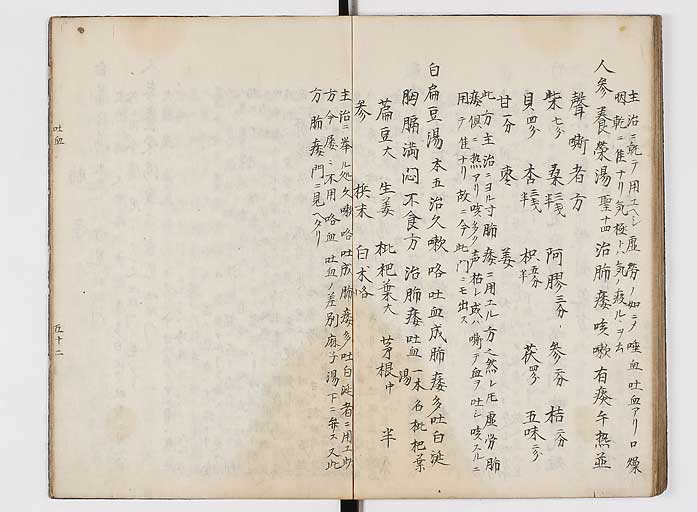 主治ニ就テ用ユヘシ虚労ノ如ニノ唾血吐血アリ口燥
咽乾ニ佳ナリ気極トハ気ノ疲ルヽヲ云
人参養榮湯 聖十四 治肺痿咳嗽有痰午熱並
聲嘶者方
柴七分 桑三戔半 阿膠三分 参二分 桔二分
貝四分 杏三戔半 枳五分半 茯四分 五味二分
甘一分 棗 姜
此方主治ニヨル寸肺痿ニ用ユル方ㇾ然レ𪜈虚労肺
痿倶ニ熱アリ咳多ク声枯レ或ハ嘶テ血ヲ吐シ咳スルニ
用テ佳ナリ故ニ今此門ニモ出ス
白扁豆湯 本五 治久嗽咯吐血成肺痿多吐白涎
胸膈満悶不食方 治肺痿吐血 一本名枇杷葉湯
萹豆大 生姜 枇杷葉大 茅根中 半
参 梹末 白求各
主治ニ挙ル処久嗽咯吐成肺痿多吐白涎者ニ用ユ此
方今屡ニ不用咯血吐血ノ差別麻子湯下ニ弁ス又此
方肺痿門ニ見ヘタリ
吐血
五十二